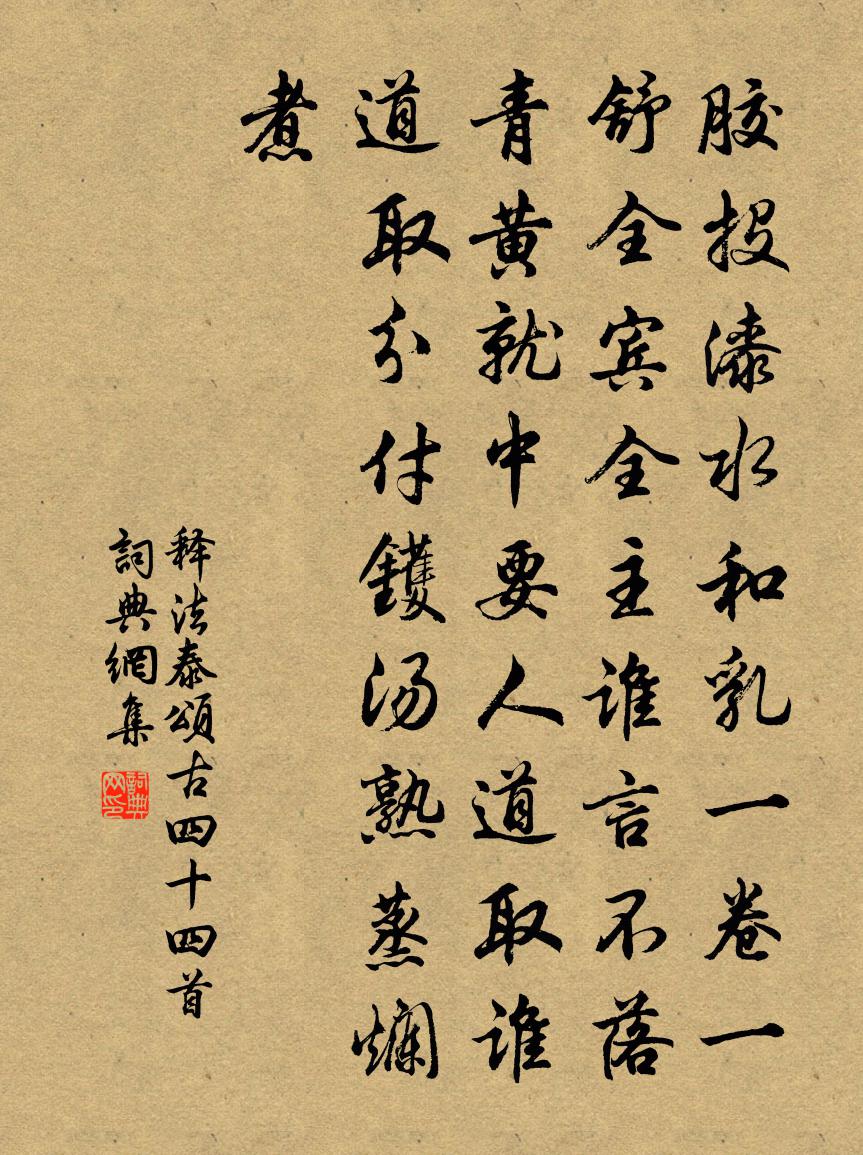 胶投漆水和乳一卷一
舒全宾全主谁言不落
青黄就中要人道取谁
道取分付鑊汤熟蒸爛
煮
释法泰頌古四十四首
詞典網集
詞典网印